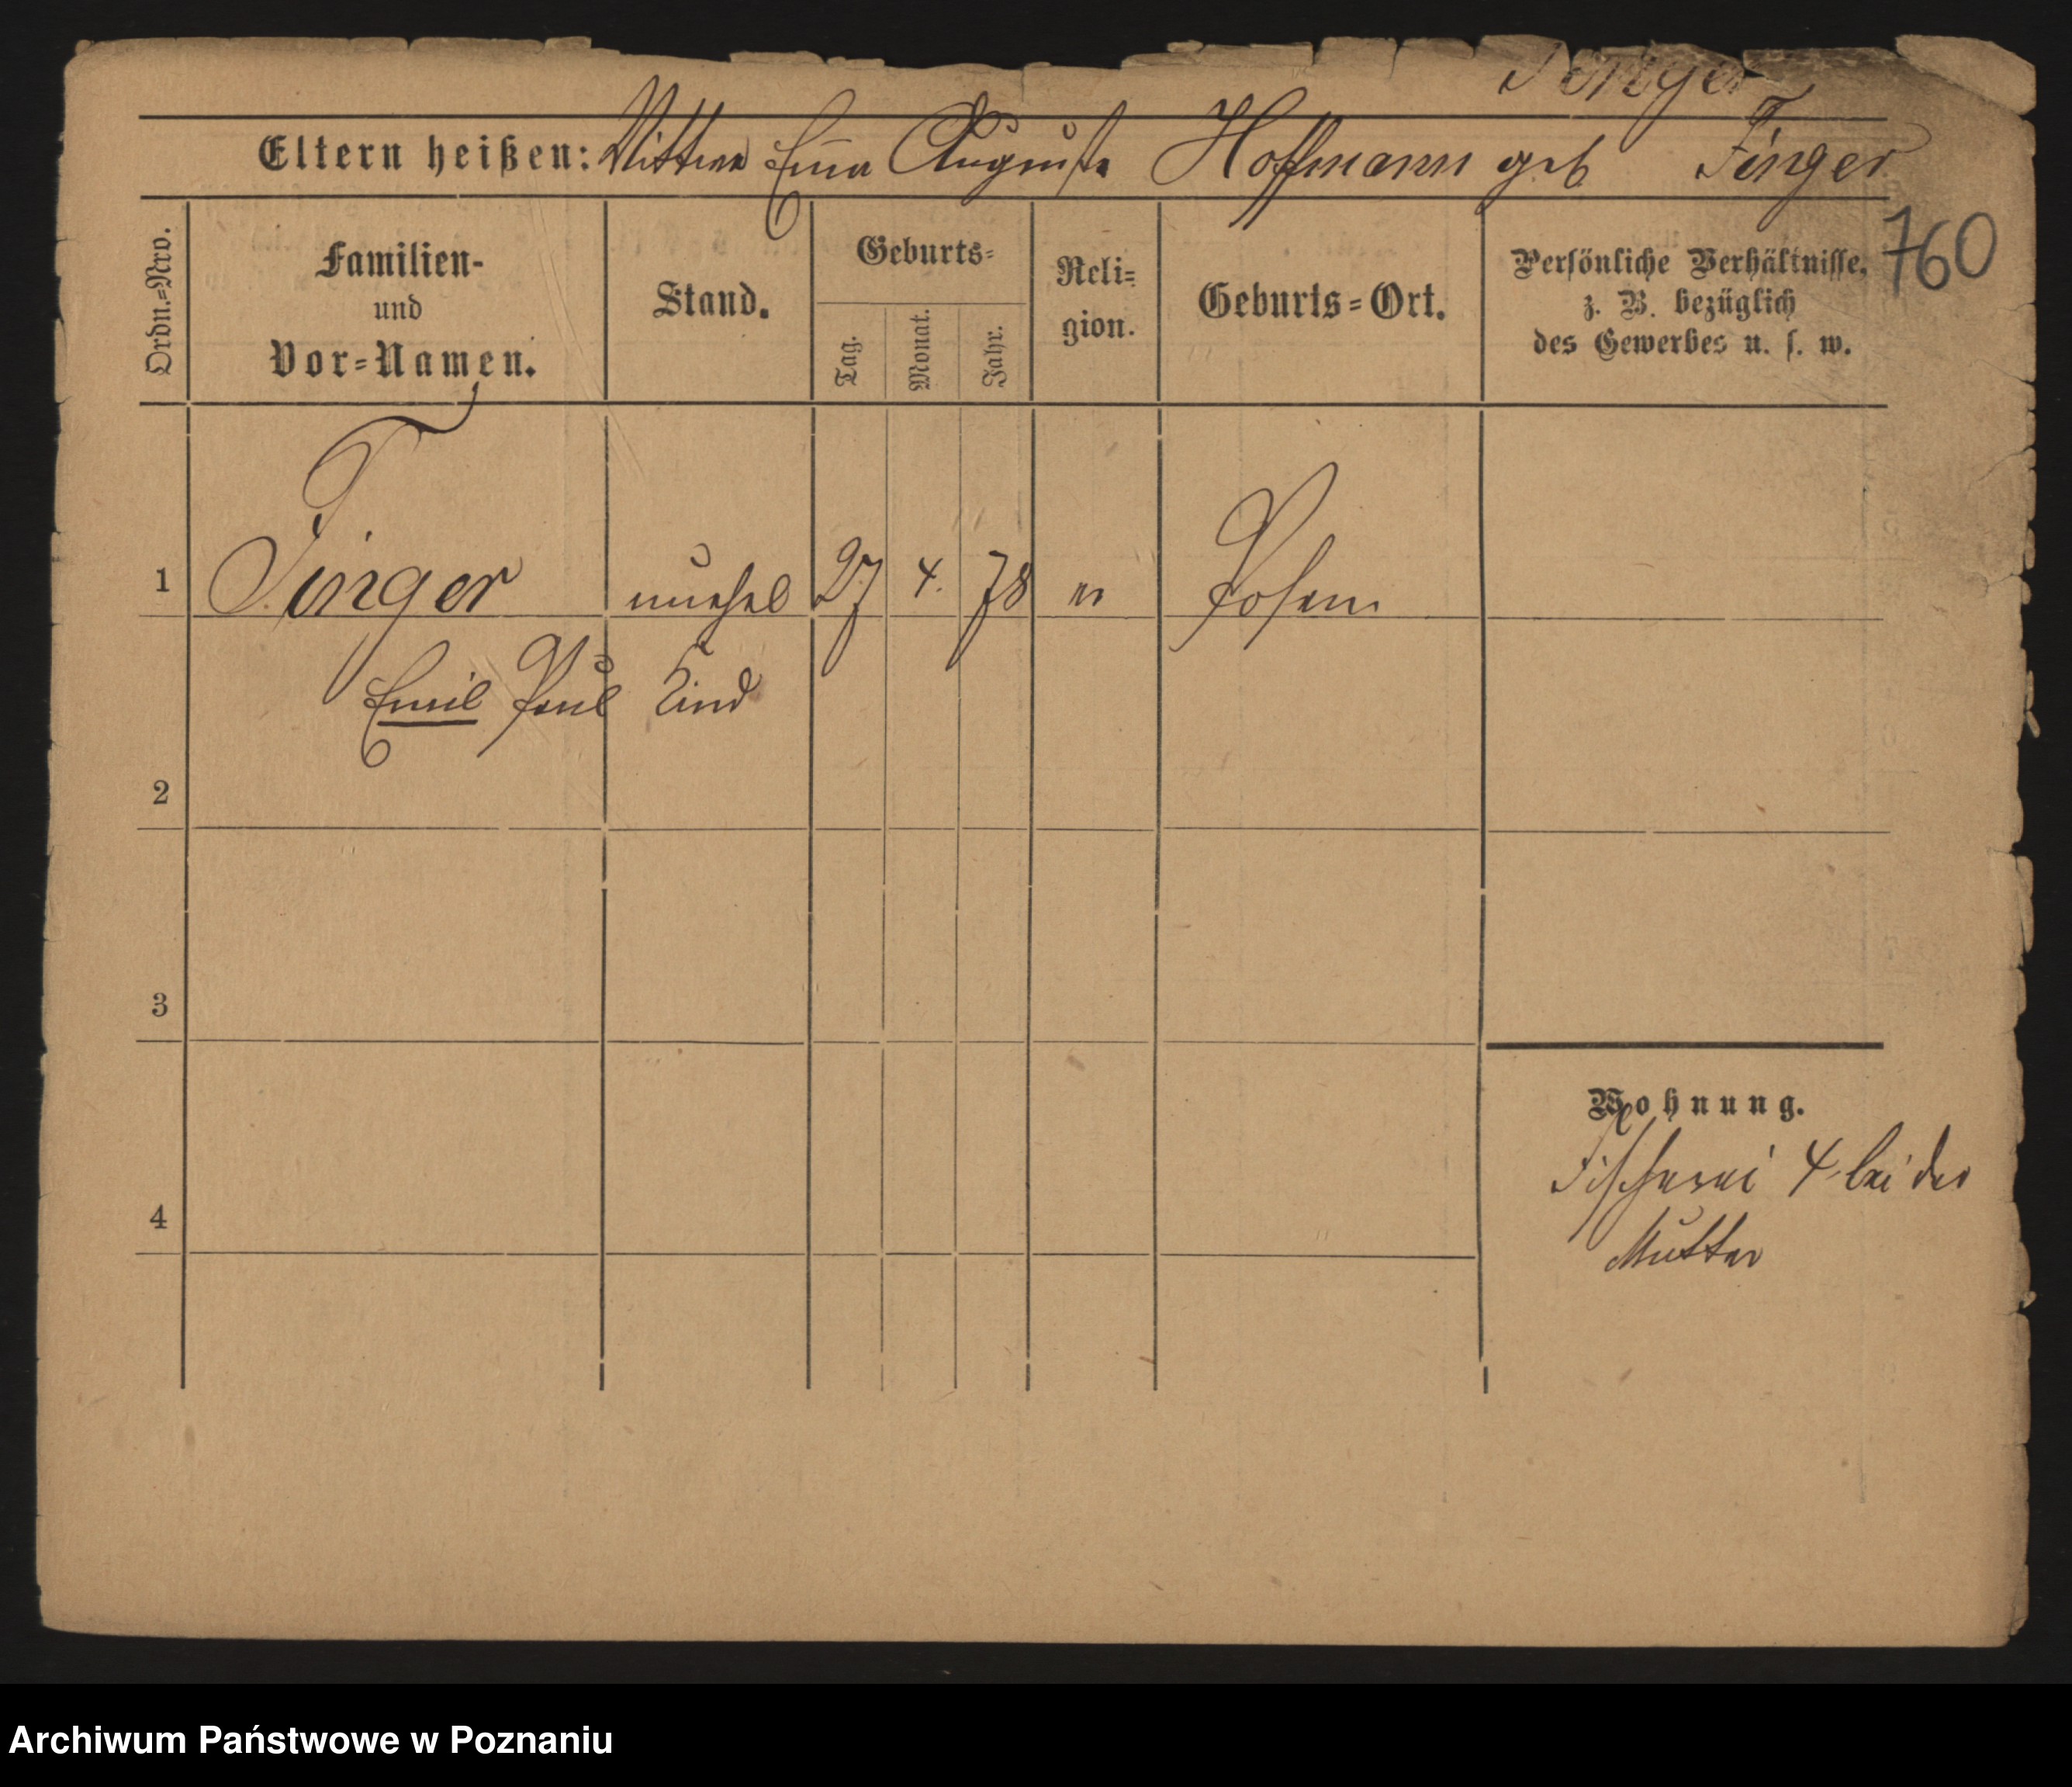 Finger
Eltern heißen: Wittwe Emma Auguste Hoffmann geb Finger
760
Ordn.=Nro.
Familien-
und
Vor=Namen.
Stand.
Geburts=
Tag.
Monat.
Jahr.
Reli=
gion.
Geburts=Ort.
Persönliche Verhältnisse,
z. B. bezüglich
des Gewerbes u. s. w.
1 Finger unehel 27 4. 78 ev Posen
Emil Paul Kind
2
3
Wohnung.
Fischerei 4 bei der
Mutter
4
Archiwum Państwowe w Poznaniu